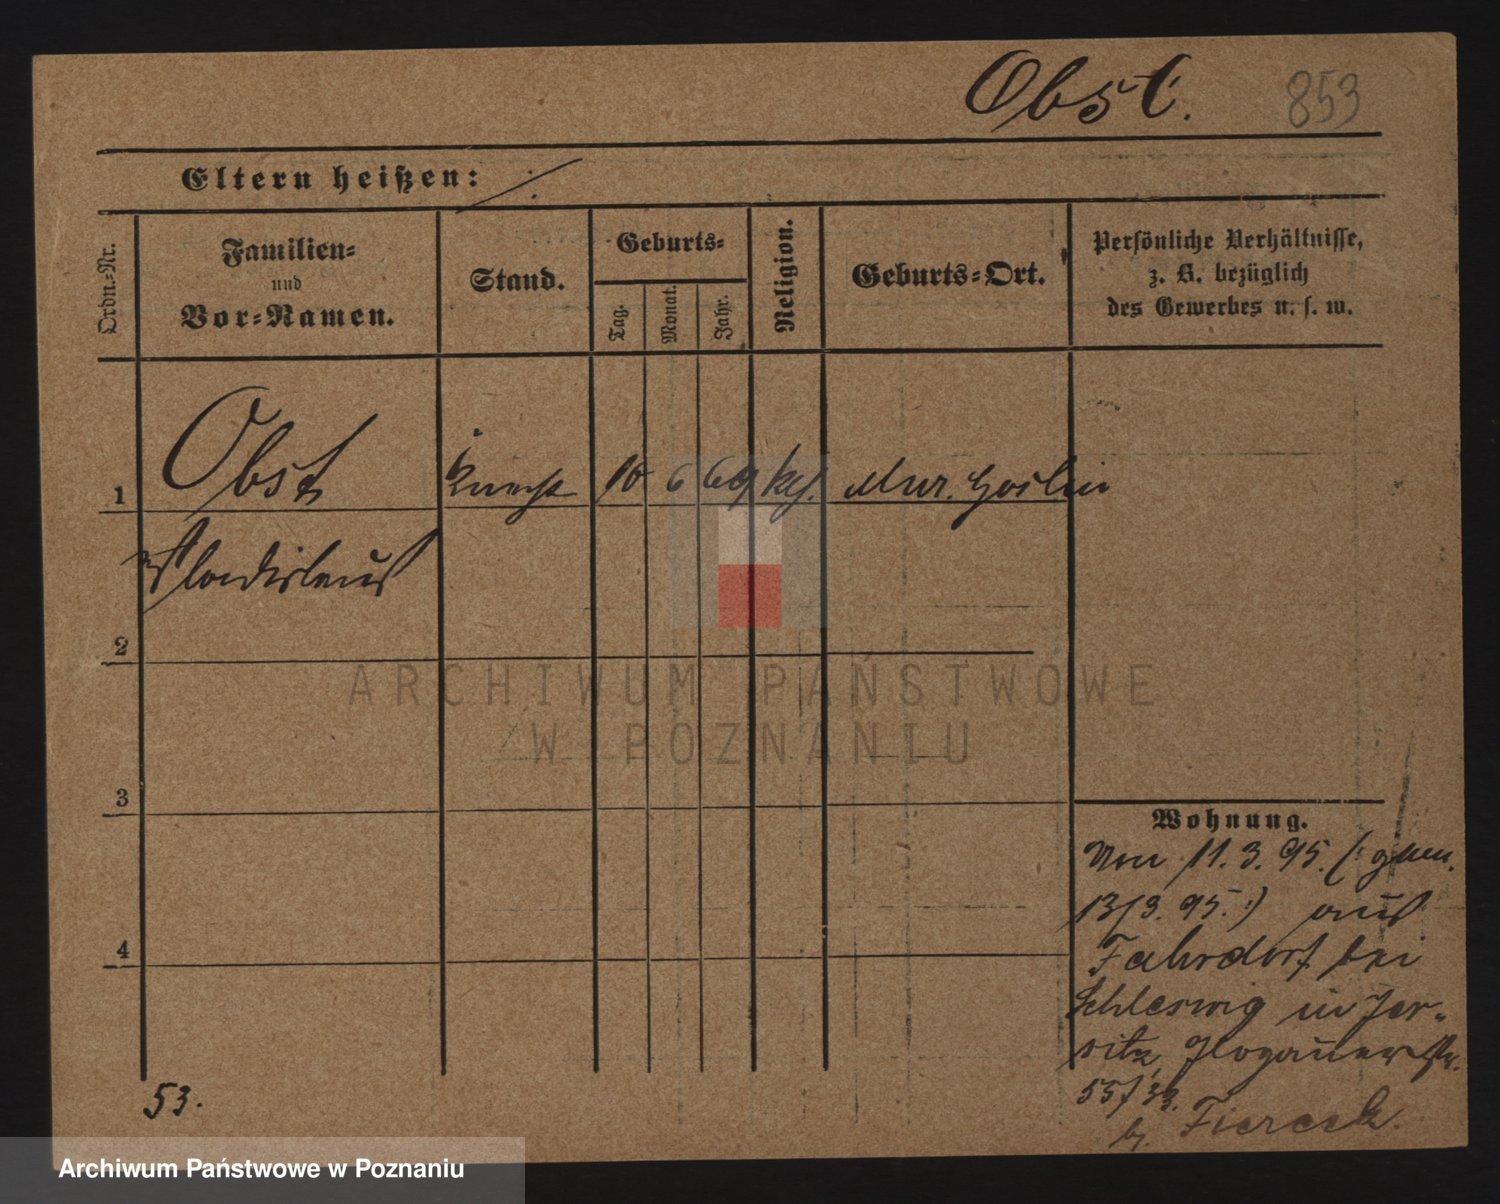 Obst.
853
Eltern heißen: ./.
Ordn.-Nr.
Familien-
und
Vor-Namen.
Stand.
Geburts-
Tag.
Monat.
Jahr.
Religion.
Geburts-Ort.
Persönliche Verhältnisse,
z. B. bezüglich
des Gewerbes u. s. w.
1 Obst Knecht 10 6 69 kth. Mur. Goslin
Wladislaus
2
3
4
Wohnung.
Von 11.3.95. (: gem.
13/3. 95. :) aus
Fahrdorf bei
Schleswig in Jer-
sitz, Glogauerstr.
55/33.
b. Fiereck.
53.
ARCHIWUM PAŃSTWOWE
W POZNANIU
Archiwum Państwowe w Poznaniu